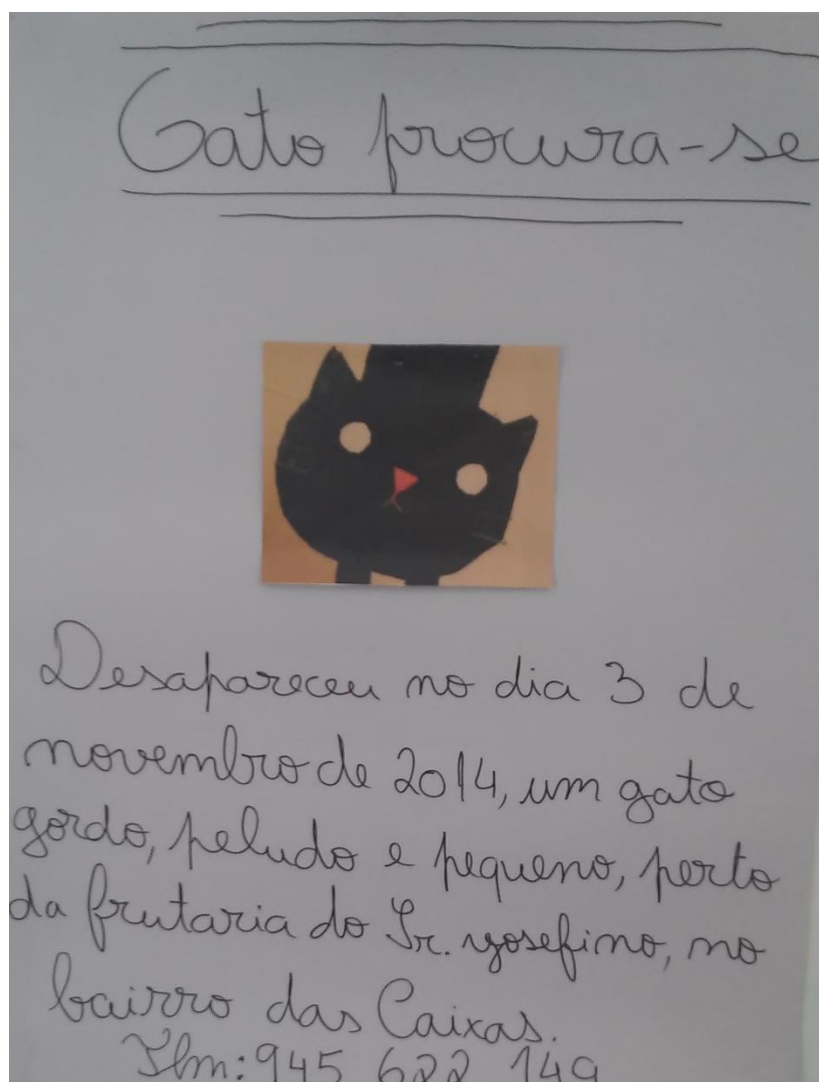 Gato procura-se
Desapareceu no dia 3 de
novembro de 2014, um gato
gordo, peludo e pequeno, perto
da frutaria do Sr. Josefino, no
bairro das Caixas.
Tlm: 945 622 149